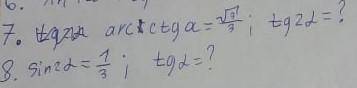 7. arcctga = √3/3; tg2α = ?
8. sin2α = 1/3; tgα = ?